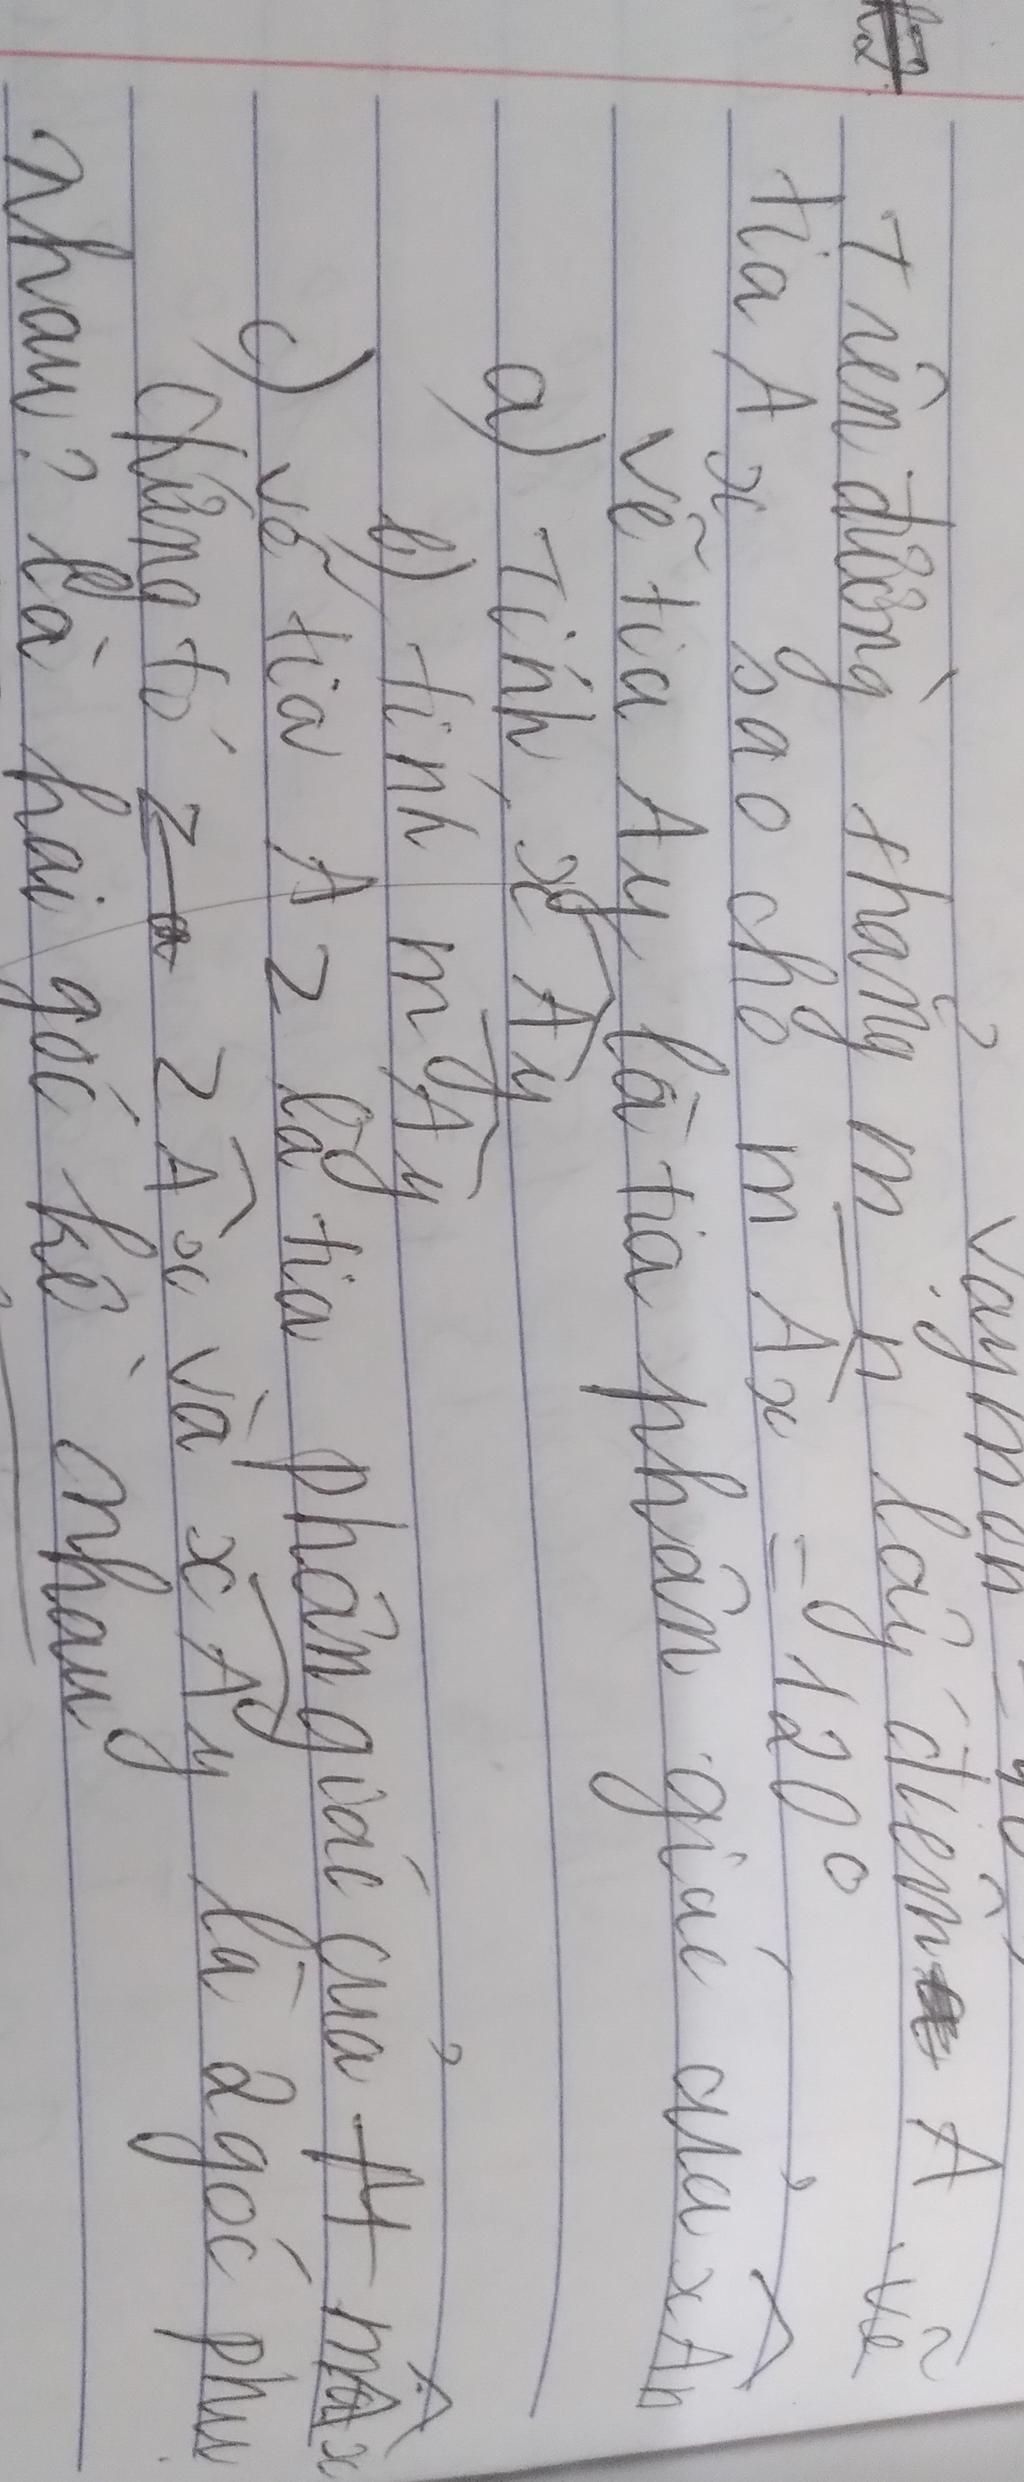 Vậy mān = 40°
h2
Trên đường thẳng mn lấy điểm A vẽ
tia Ax sao cho mAx = 120°
vẽ tia Ay là tia phân giác của xAn
a) Tính xAy
b) tính mAy
c) vẽ tia Az là tia phân giác của mAx
chứng tỏ zAx và xAy là 2 góc phụ
nhau? là hai góc kề nhau